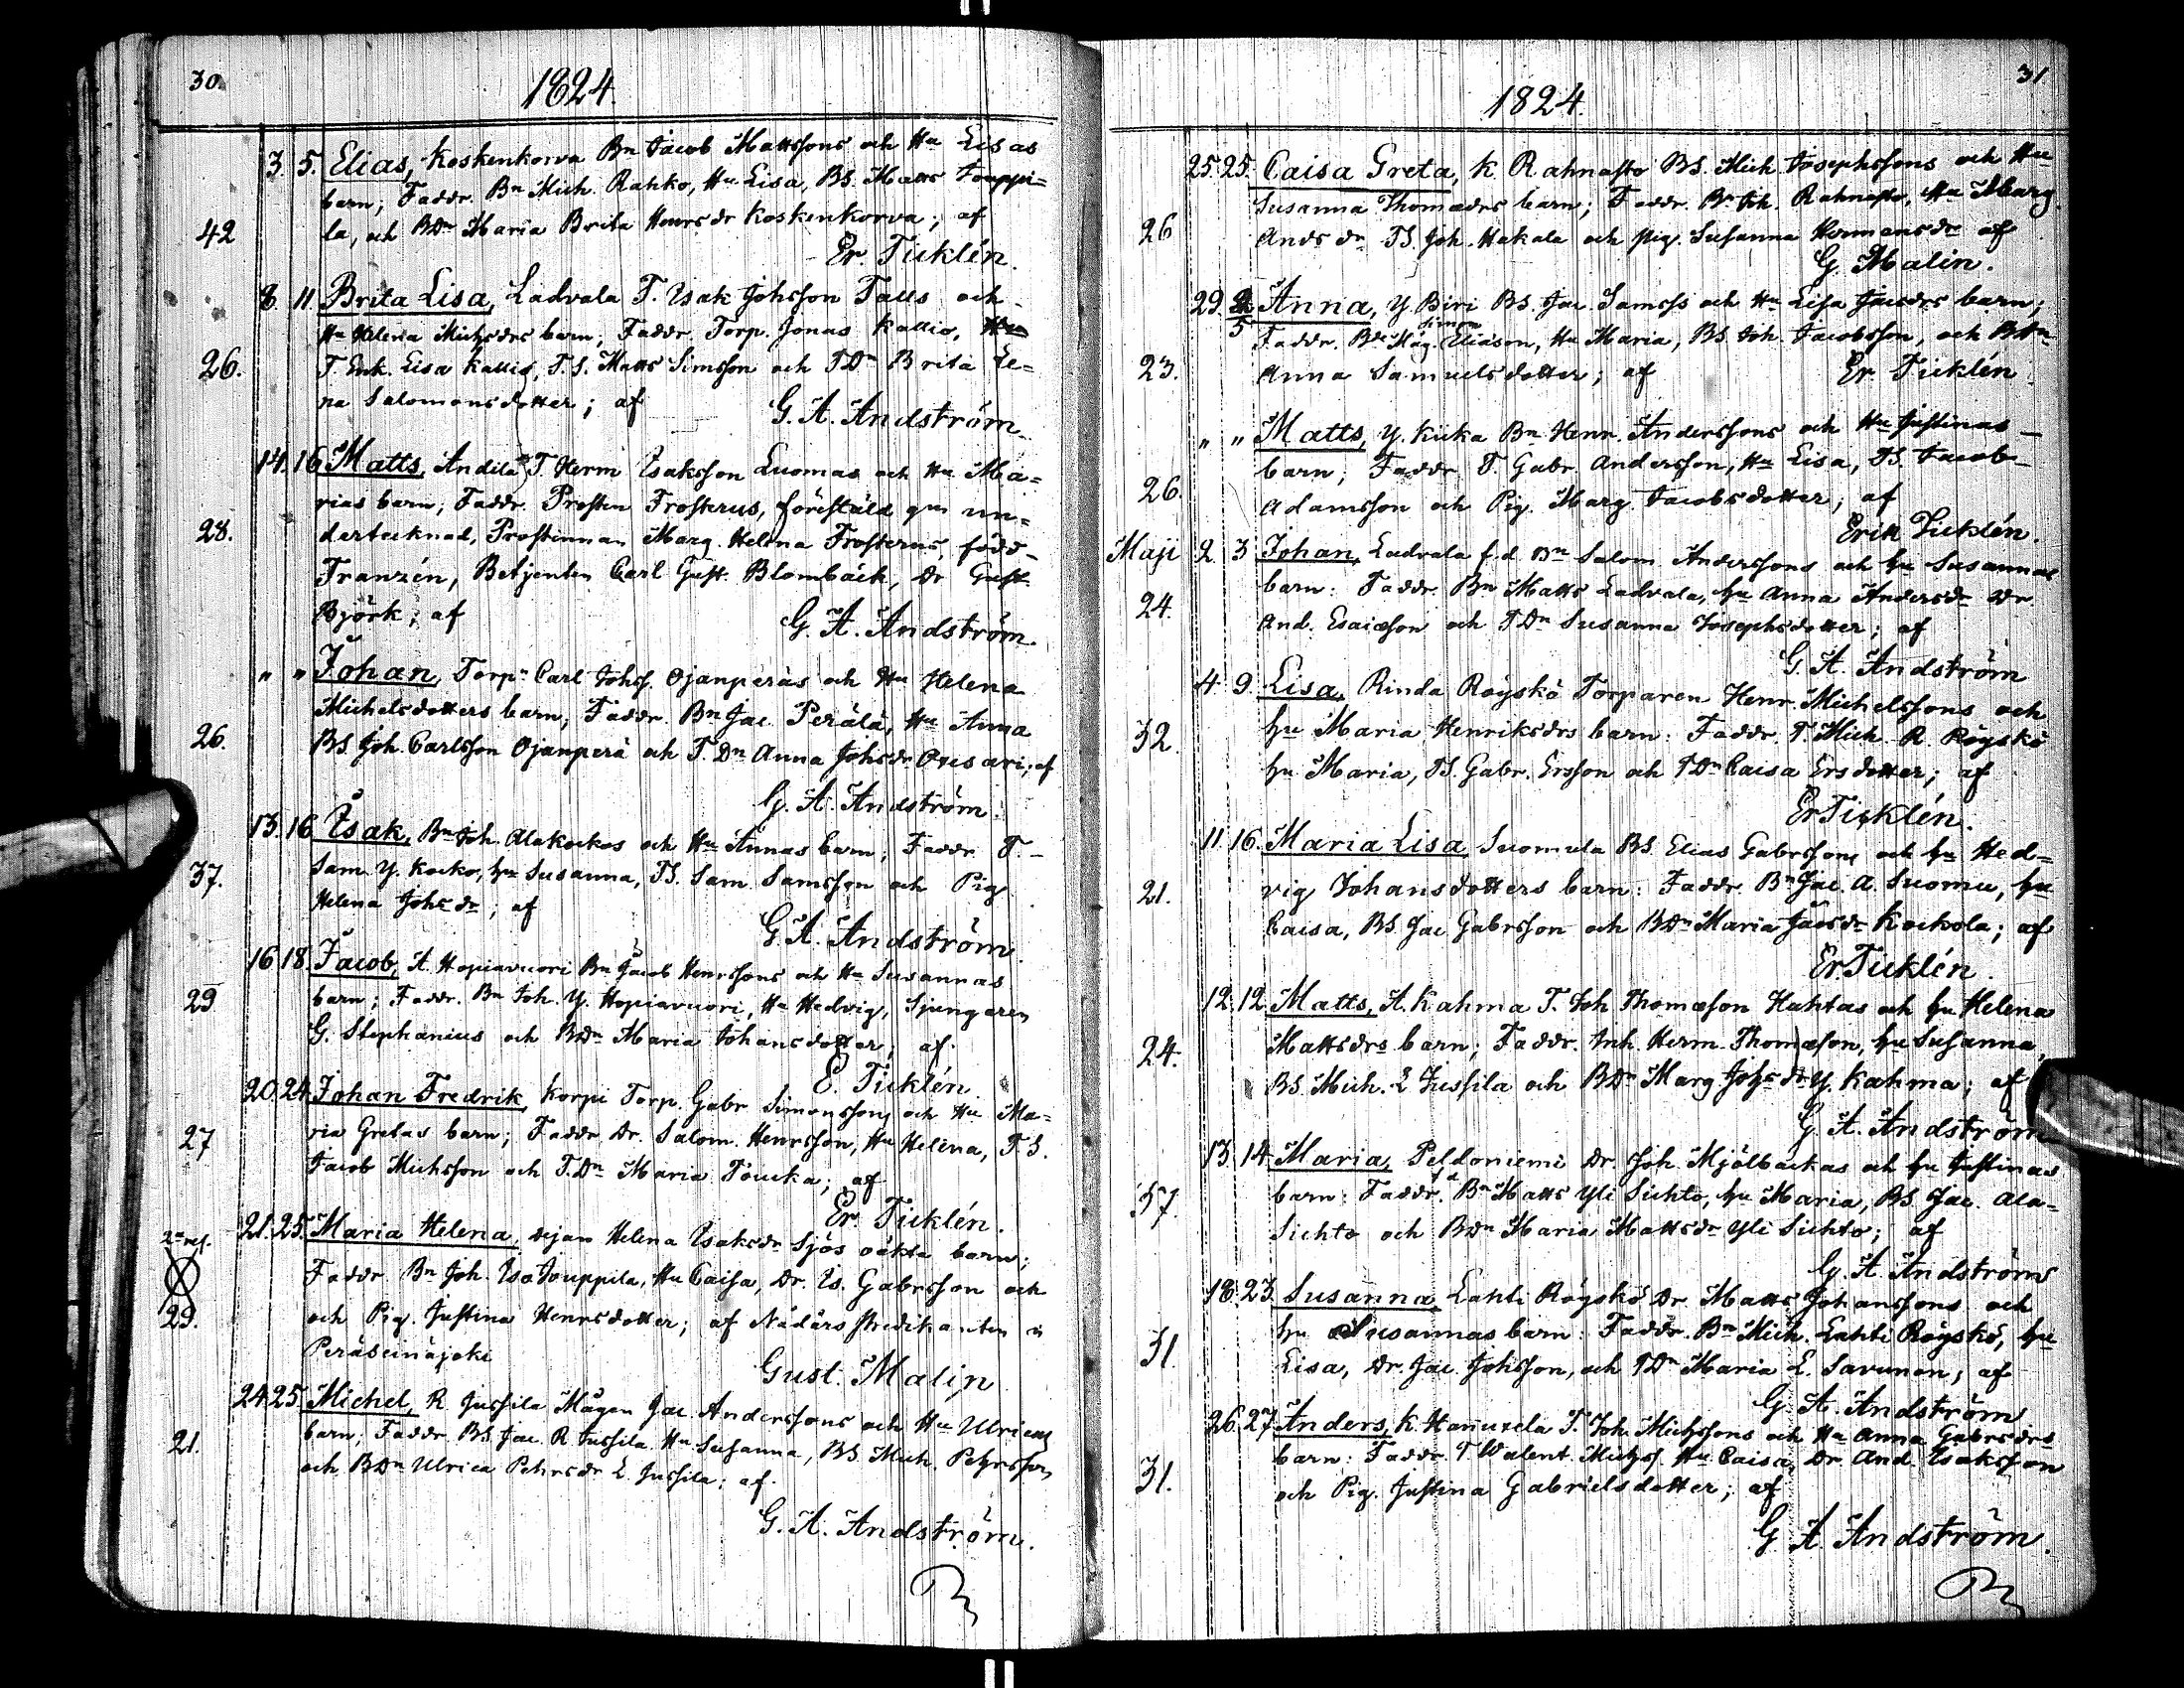 30.
1824.
3. 5. Elias, Koskenkorva Bn Jacob Mattssons och Hu Lisas
barn; Faddr. Bn Mich. Rahko, Hu Lisa, BS. Matts Jouppi=
42 la, och BDn Maria Brita Henrsdr Koskenkorva; af
Er. Ticklén.
8. 11. Brita Lisa, Ladvala T. Isak Johsson Talls och
Hu Helena Michsdrs barn; Faddr. Torp. Jonas Kallio, Hu
26. T. Enk. Lisa Kallio, T.S. Matts Simsson och TDn Brita Le=
na Salomonsdotter; af G. A. Andström.
14. 16. Matts, Andila T. Herm Isaksson Luomas och Hu Ma=
rias barn; Faddr. Prosten Frosterus, föreställd gm un=
28. dertecknad, Prostinnan Marg. Helena Frosterus, född
Franzén, Betjenten Carl Gust. Blombäck, Dr Gust.
Björk; af G. A. Andström.
" " Johan, Torpn Carl Johss. Ojanperäs och Hu Helena
Michelsdotters barn; Faddr. Bn Jac. Perälä, Hu Anna
26. BS. Joh. Carlsson Ojanperä och T.Dn Anna Johsdr; af
G. A. Andström.
15. 16. Isak, Bn Joh. Alakockos och Hu Annas barn; Faddr. T.
37. Sam. Y. Kocko, hu Susanna, TS. Sam. Samsson och Pig.
Helena Johsdr; af
G. A. Andström.
16 18. Jacob, A. Hopiavuori Bn Jacob Henrssons och Hu Susannas
29 barn; Faddr. Bn Joh. Y. Hopiavuori, Hu Hedvig, Sjungaren
G. Stephanius och BDn Maria Johansdotter; af
E. Ticklén.
20. 24. Johan Fredrik, Korpi Torp. Gabr. Simonssons och Hu Ma=
27 ria Gretas barn; Faddr. Dr. Salom. Henrsson, Hu Helena, T S.
Jacob Michsson och T.Dn Maria; af
Er. Ticklén.
21. 25. Maria Helena, Helena Isaksdr Sjös oäkta barn;
Faddr. Bn Joh. Iso Jouppila, Hu Caisa, Dr. Is. Gabrsson och
29. och Pig. Justina Henrsdotter; af Nådårs Predikanten i
Peräseinäjoki
Gust. Malin
24 25. Michel, R. Jussila Mågen Jac. Anderssons och Hu Ulricas
21. barn; Faddr. BS. Jac. R. Jussila Hu Susanna, BS. Mich. Pehrsson
och BDn Ulrica Pehrsdr L. Jussila; af
G. A. Andström.
31
1824.
25. 25. Caisa Greta, K. Rahnasto BS. Mich. Josephssons och Hu
Susanna Thomædrs barn; Faddr. Bn Joh. Rahnasto, Hu Marg
26 Andsdr TS. Joh. Hakala och pig. Susanna Hermansdr af
G. Malin.
29. 5 Anna, Y. Biri BS. Jac. Samss och Hu Lisa Jacsdrs barn;
Faddr. Simon Eliason, Hu Maria, BS. Joh. Jacobsson, och BDn
23. Anna Samuelsdotter; af Er. Ticklén
" " Matts, Y. Kuka Bn Henr. Anderssons och Hu Justinas
barn; Faddr. T. Gabr. Andersson, Hu Lisa, TS. Jacob
26. Adamsson och Pig. Marg. Jacobsdotter; af
Erik Ticklén.
Maji 2 3 Johan, Ladvala f.d. Bn Salom. Anderssons och hu Susannas
24. barn: Faddr. Bn Matts Ladvala, hu Anna Andersdr Dr.
And. Esaiæson och TDn Susanna Josephsdotter; af
G. A. Andström
4 9 Lisa, Rinda Röyskö Torparen Henr. Michelssons och
32. hu Maria Henriksdrs barn: Faddr. T. Mich. R. Röyskö
hu Maria, TS. Gabr. Ersson och TDn Caisa Ersdotter; af
Er Ticklén.
11. 16. Maria Lisa, Suomela BS. Elias Gabrssons och hu Hed=
21. vig Johansdotters barn: Faddr. Bn Jac. A. Suomu, hu
Caisa, BS. Jac Gabrsson och BDn Maria Jacsdr Kockola; af
Er. Ticklén.
12. 12. Matts, A. Kahma T. Joh Thomæson Hahtas och hu Helena
24. Mattsdrs barn; Faddr. Inh. Herm. Thomæson, hu Susanna,
BS. Mich. L Jussila och BDn Marg Johsdr Y. Kahma; af
G. A. Andström
13. 14. Maria, Peldoniemi Dr. Joh. Mjölbackas och hu Justinas
37. barn: Faddr. Bn Matts Yli Sichto, hu Maria, BS. Jac. Ala-
Sichto och BDn Maria Mattsdr Yli Sichto; af
G. A. Andström
18. 23. Susanna, Lahti Röyskö Dr. Matts Johanssons och
31. hu Susannas barn: Faddr. Bn Mich. Lahti Röyskö, hu
Lisa, Dr. Jac. Johsson, och TDn Maria L. Savunen; af
G. A. Andström
26. 27 Anders, K. Hanuxela T. Joh. Michssons och Hu Anna Gabrsdrs
31. barn: Faddr. T Walent. Michss. Hu Caisa, Dr. And. Isaksson
och Pig. Justina Gabrielsdotter; af
G A. Andström.